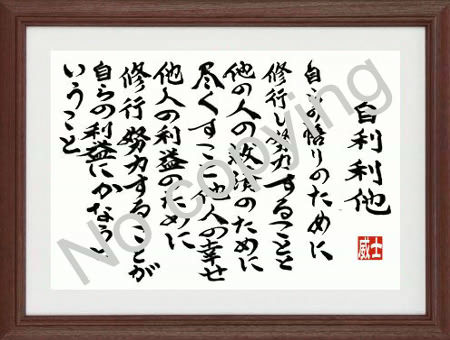 自利利他
自らの悟りのために
修行し努力することと
他の人の救済のために
尽くすこと他人の幸せ
他人の利益のために
修行努力することが
自らの利益にかなうと
いうこと
威士
No copying